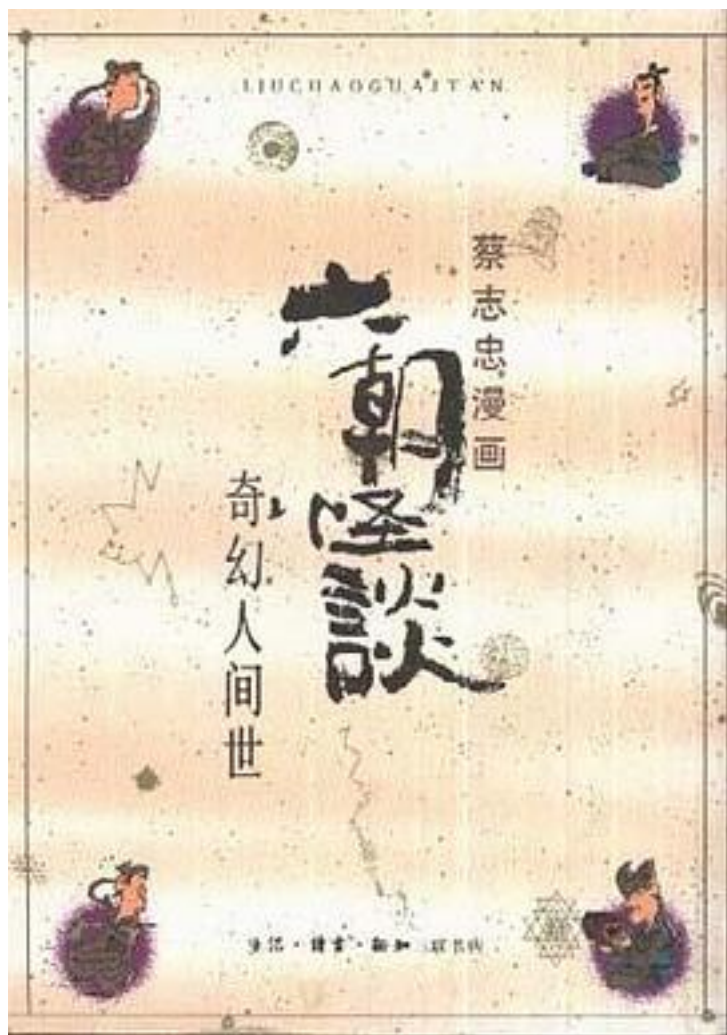 LIUCHAOGUAITAN
蔡志忠漫画
六朝怪談
奇幻人间世
生活·讀書·新知 三联书店